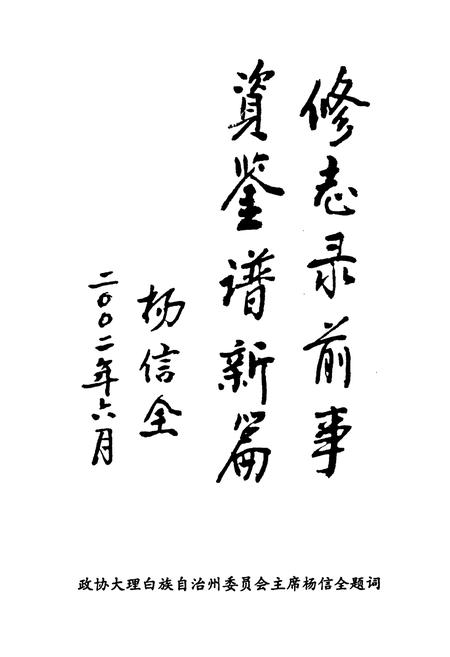 修志录前事
資鉴谱新篇
杨信全
二〇〇二年六月
政协大理白族自治州委员会主席杨信全题词